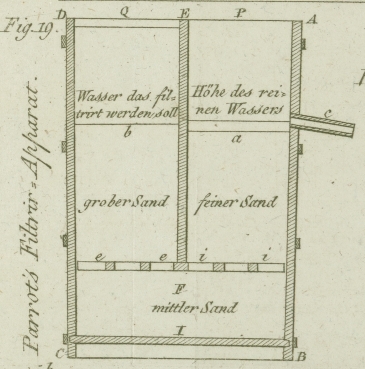 Fig. 19.
D Q E P A
Wasser das fil=
trirt werden soll
Höhe des rei=
nen Wassers
c
b
a
grober Sand
feiner Sand
e e i i
F
mittler Sand
I
C
B
Parrot's Filtrir=Apparat.